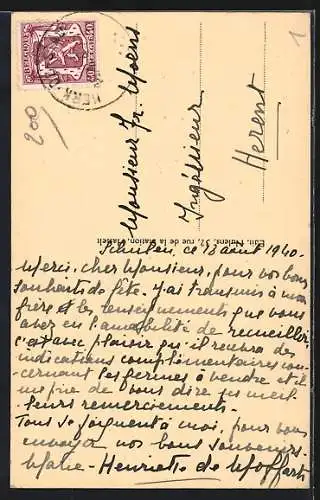 Monsieur Fr. Moens
Ingénieur
Herent
Edit. Nulens, 37, rue de la Station, Hasselt
Schulen, ce 18 août 1940
Merci, cher Monsieur, pour vos bons
souhaits de fête. J'ai transmis à mon
frère et les renseignements que vous
avez eu l'amabilité de recueillir,
c'est avec plaisir qu'il recevra des
indications complémentaires con-
cernant les fermes à vendre et il
me prie de vous dire ses meil-
leurs remerciements.
Tous se joignent à moi, pour vous
envoyer nos bons souvenirs.
Marie-Henriette de Moffarts
200
1